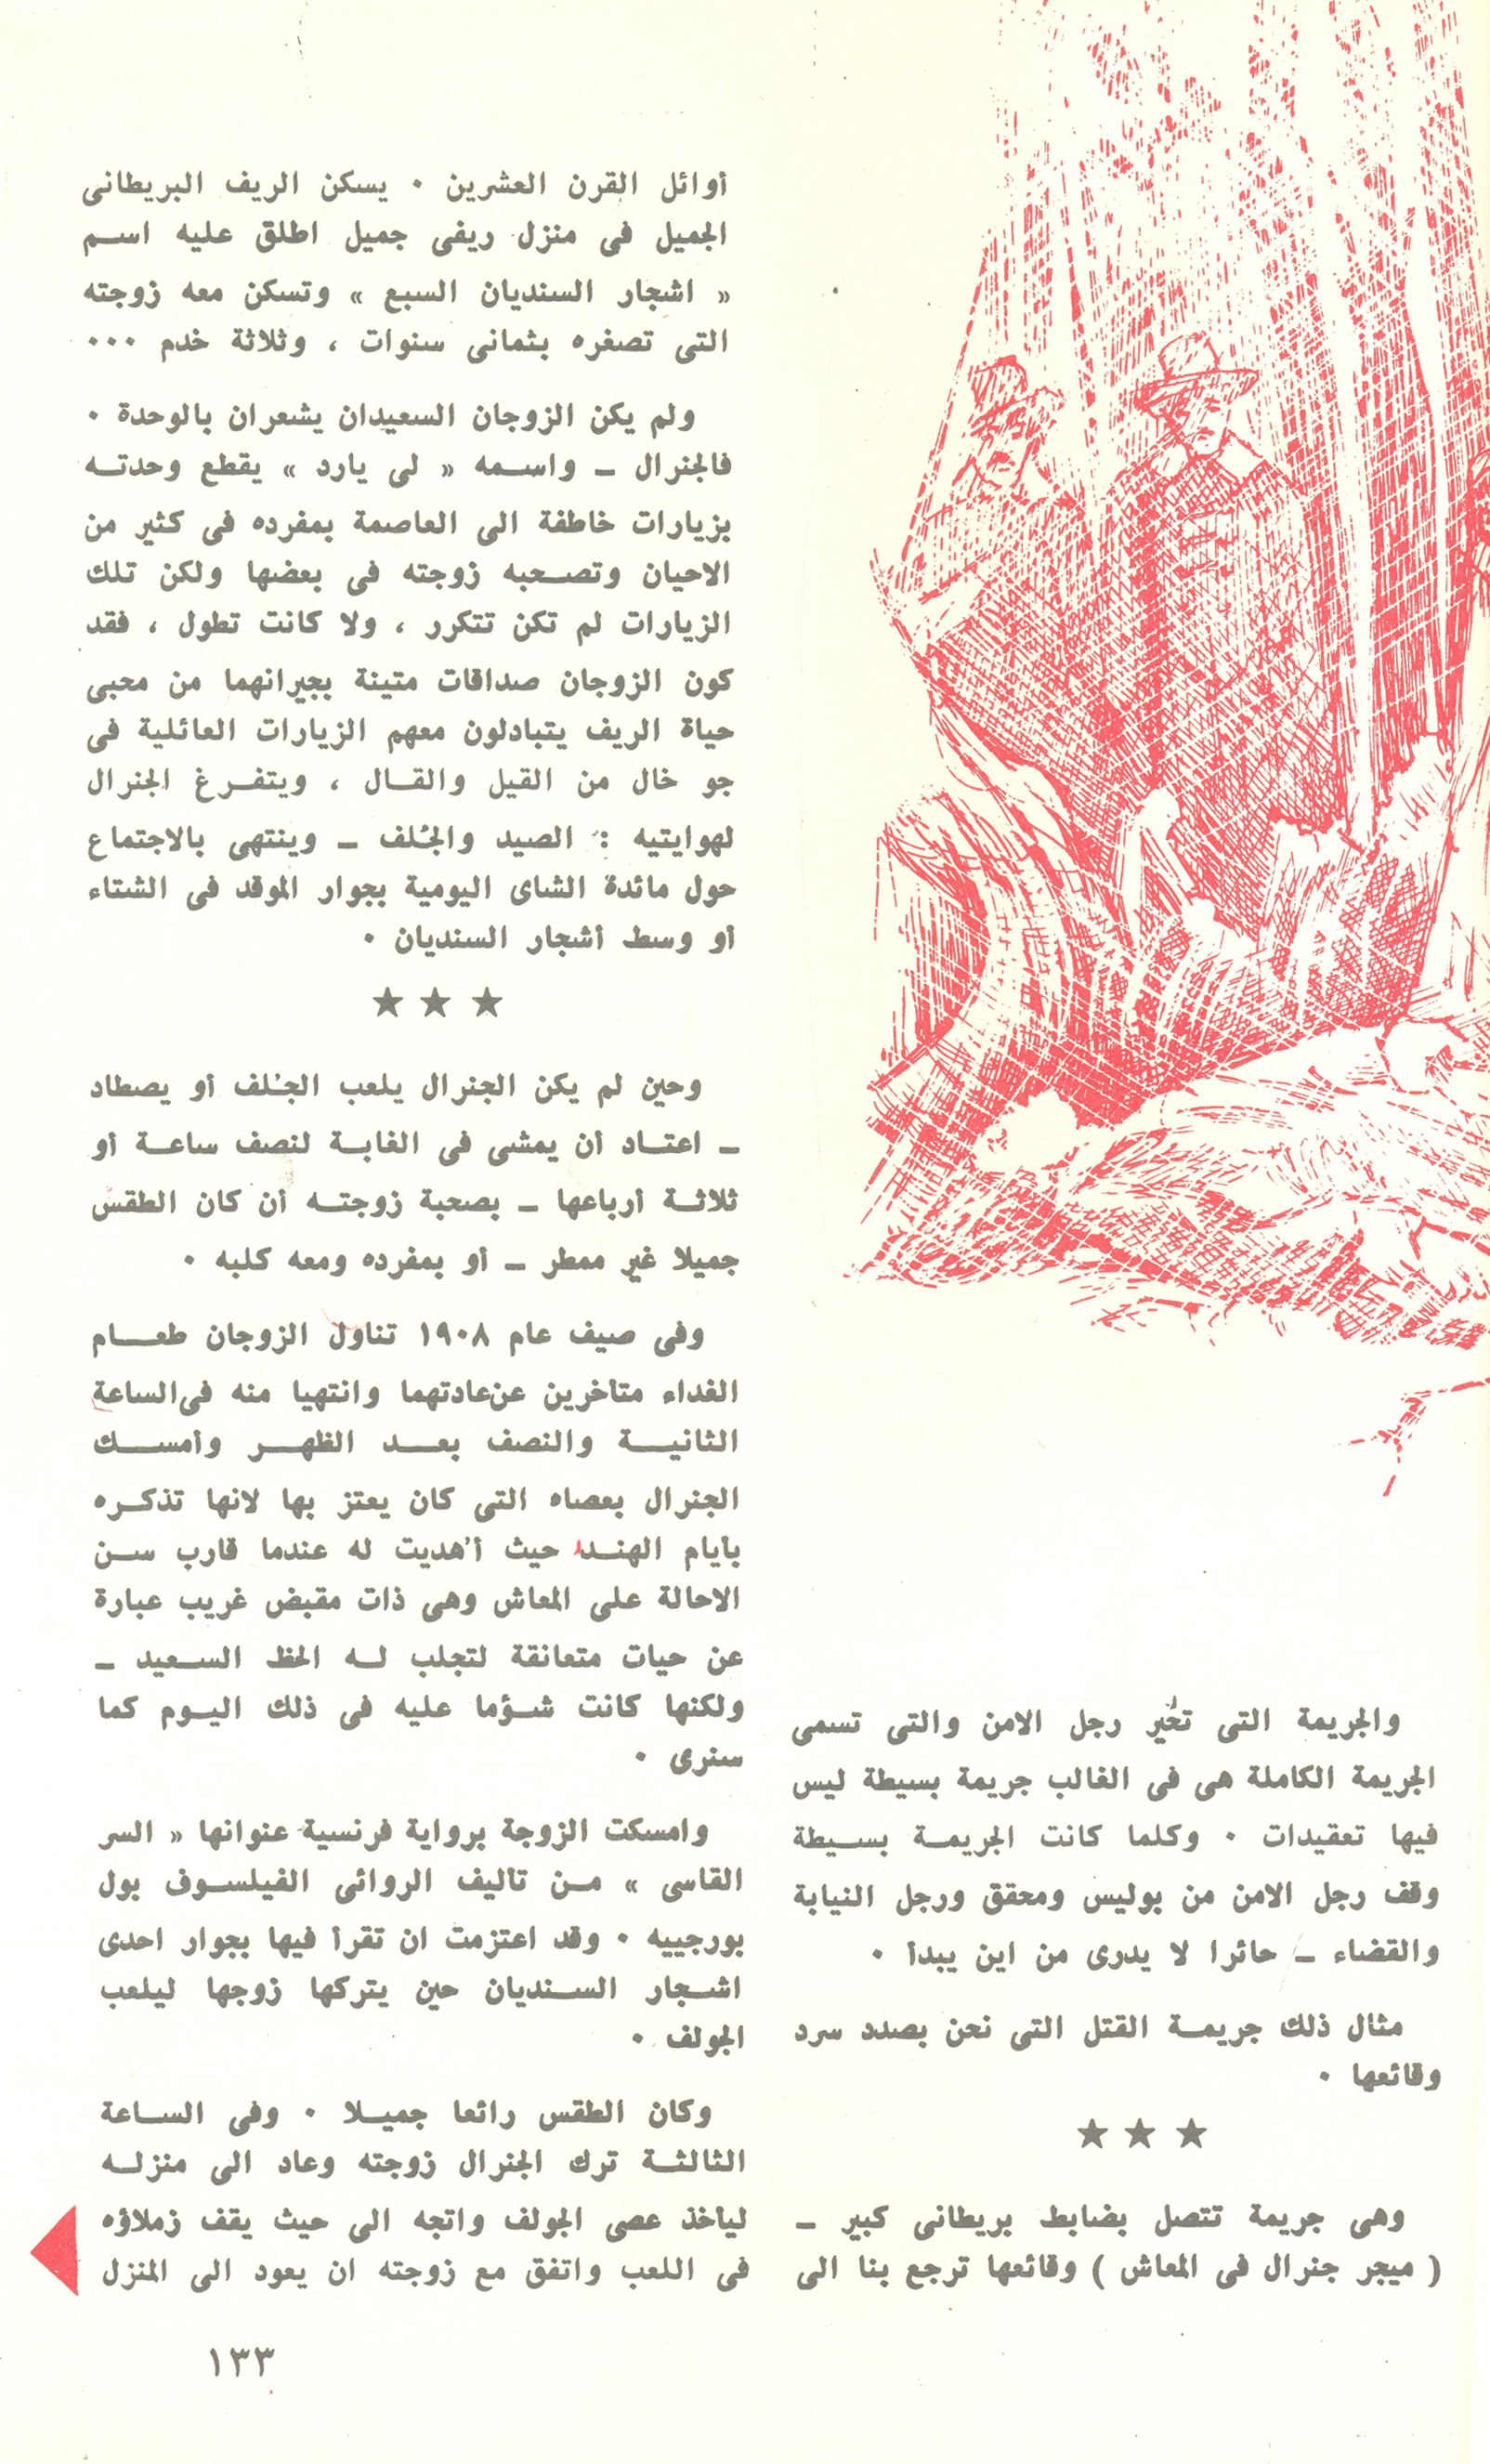 والجريمة التى تحُير رجل الامن والتى تسمى
الجريمة الكاملة هى فى الغالب جريمة بسيطة ليس
فيها تعقيدات ٠ وكلما كانت الجريمــة بســيطة
وقف رجل الامن من بوليس ومحقق ورجل النيابة
والقضاء ـ حائرا لا يدرى من اين يبدأ ٠
مثال ذلك جريمــة القتل التى نحن بصدد سرد
وقائعها ٠
★ ★ ★
وهى جريمة تتصل بضابط بريطانى كبير ـ
( ميجر جنرال فى المعاش ) وقائعها ترجع بنا الى
أوائل القرن العشرين ٠ يسكن الريف البريطانى
الجميل فى منزل ريفى جميل اطلق عليه اســم
« اشجار السنديان السبع » وتسكن معه زوجته
التى تصغره بثمانى سنوات ، وثلاثة خدم ٠٠٠
ولم يكن الزوجان السعيدان يشعران بالوحدة ٠
فالجنرال ـ واســمه « لى يارد » يقطع وحدتــه
بزيارات خاطفة الى العاصمة بمفرده فى كثير من
الاحيان وتصــحبه زوجته فى بعضها ولكن تلك
الزيارات لم تكن تتكرر ، ولا كانت تطول ، فقد
كون الزوجان صداقات متينة بجيرانهما من محبى
حياة الريف يتبادلون معهم الزيارات العائلية فى
جو خال من القيل والقــال ، ويتفــرغ الجنرال
لهوايتيه : الصيد والجُلف ـ وينتهى بالاجتماع
حول مائدة الشاى اليومية بجوار الموقد فى الشتاء
أو وسط أشجار السنديان ٠
★ ★ ★
وحين لم يكن الجنرال يلعب الجُلف أو يصطاد
ـ اعتــاد أن يمشى فى الغابــة لنصف ساعــة أو
ثلاثــة أرباعها ـ بصحبة زوجتــه أن كان الطقس
جميلا غير ممطر ـ أو بمفرده ومعه كلبه ٠
وفى صيف عام ١٩٠٨ تناول الزوجان طعــــام
الغداء متأخرين عن عادتهما وانتهيا منه فى الساعة
الثانيــــة والنصف بعــــد الظهــــر وأمســــك
الجنرال بعصاه التى كان يعتز بها لانها تذكــره
بأيام الهنــد حيث أُهديت له عندما قارب ســن
الاحالة على المعاش وهى ذات مقبض غريب عبارة
عن حيات متعانقة لتجلب لــه الحظ الســعيد ـ
ولكنها كانت شــؤما عليه فى ذلك اليــوم كما
سنرى ٠
وامسكت الزوجة برواية فرنسية عنوانها « السر
القاسى » مــن تأليف الروائى الفيلســوف بول
بورجييه ٠ وقد اعتزمت ان تقرأ فيها بجوار احدى
اشــجار الســنديان حين يتركها زوجها ليلعب
الجولف ٠
وكان الطقس رائعا جميــلا ٠ وفى الســاعة
الثالثــة ترك الجنرال زوجته وعاد الى منزلــه
ليأخذ عصى الجولف واتجه الى حيث يقف زملاؤه
فى اللعب واتفق مع زوجته ان يعود الى المنزل
١٣٣